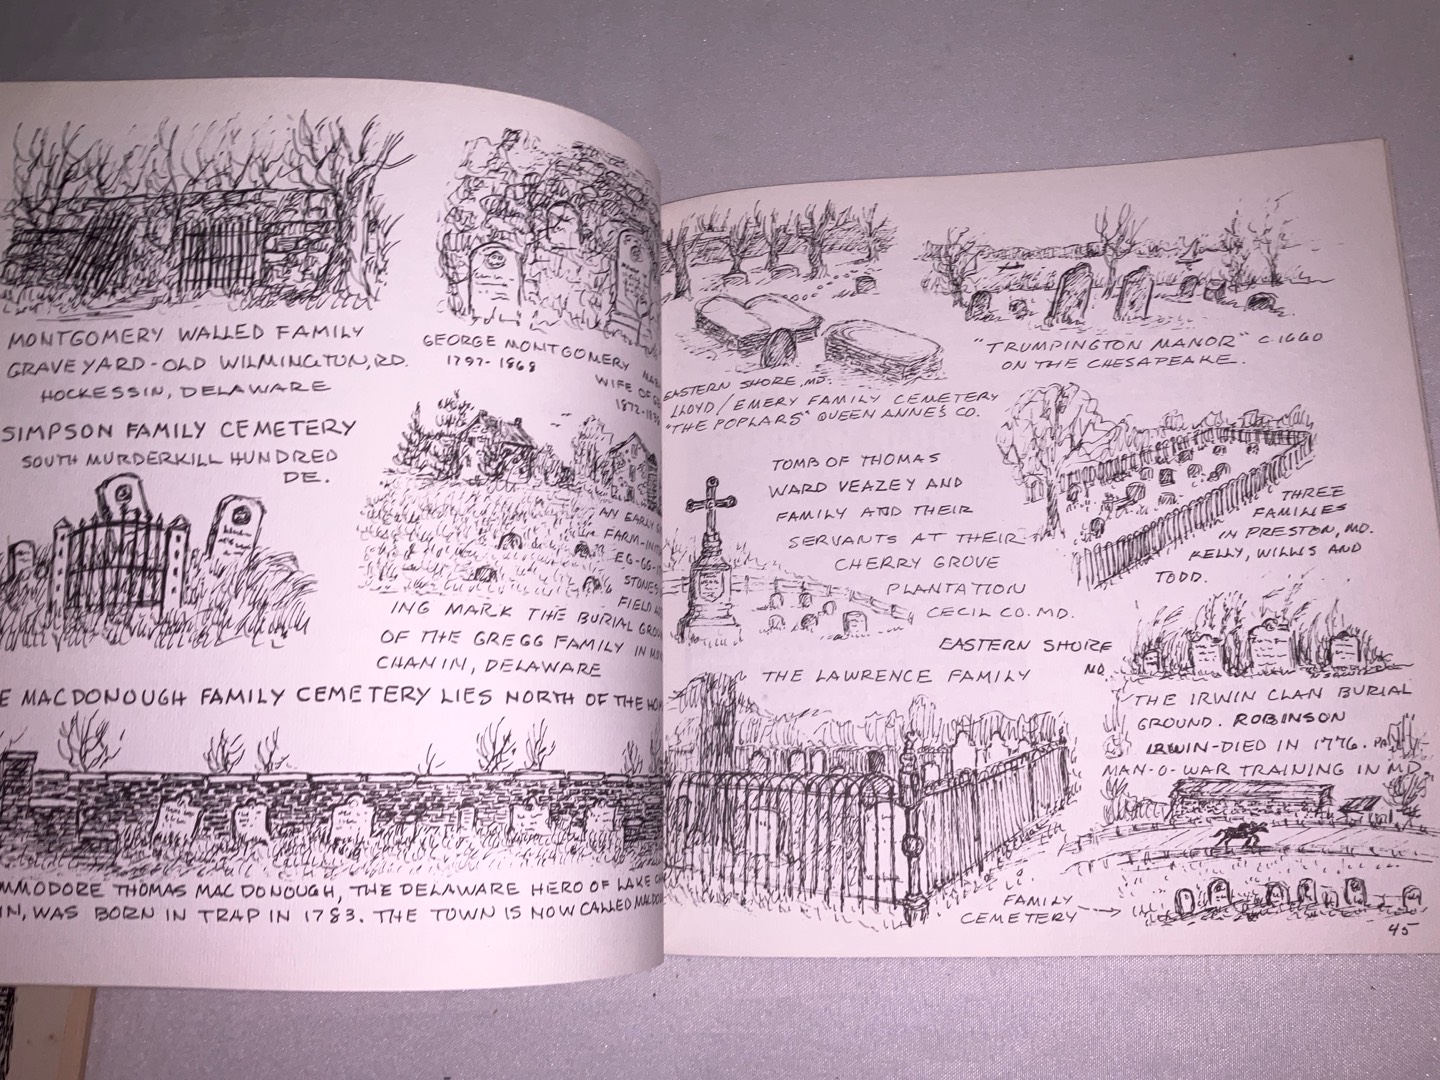 MONTGOMERY WALLED FAMILY
GRAVEYARD-OLD WILMINGTON, RD.
HOCKESSIN, DELAWARE
GEORGE MONTGOMERY
1797-1868
WIFE OF
1872-
SIMPSON FAMILY CEMETERY
SOUTH MURDERKILL HUNDRED
DE.
AN EARLY
FARM-
STONES
FIELD
ING MARK THE BURIAL
OF THE GREGG FAMILY IN
CHANIN, DELAWARE
MACDONOUGH FAMILY CEMETERY LIES NORTH OF THE
THOMAS MACDONOUGH, THE DELAWARE HERO OF LAKE
WAS BORN IN TRAP IN 1783. THE TOWN IS NOW CALLED
EASTERN SHORE, MD.
LLOYD/EMERY FAMILY CEMETERY
"THE POPLARS" QUEEN ANNE'S CO.
"TRUMPINGTON MANOR" C.1660
ON THE CHESAPEAKE.
TOMB OF THOMAS
WARD VEAZEY AND
FAMILY AND THEIR
SERVANTS AT THEIR
CHERRY GROVE
PLANTATION
CECIL CO. MD.
THREE
FAMILIES
IN PRESTON, MD.
KELLY, WILLIS AND
TODD.
EASTERN SHORE
MD.
THE LAWRENCE FAMILY
THE IRWIN CLAN BURIAL
GROUND. ROBINSON
IRWIN-DIED IN 1776. PA.
MAN-O-WAR TRAINING IN MD.
FAMILY
CEMETERY
45